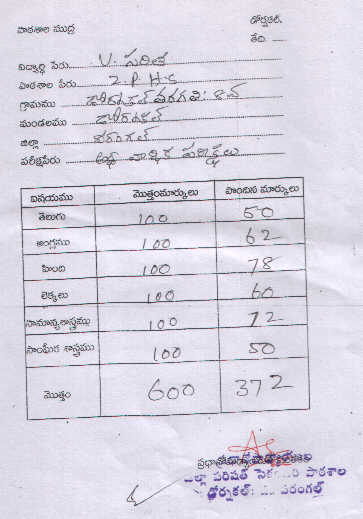 పాఠశాల ముద్ర
డోర్నకల్.
తేది.
విద్యార్థి పేరు V. సరిత
పాఠశాల పేరు Z.P.H.S
గ్రామము డోర్నకల్ తరగతి:
మండలము డోర్నకల్
జిల్లా వరంగల్
పరీక్షపేరు అర్థ వార్షిక పరీక్షలు
విషయము మొత్తంమార్కులు పొందిన మార్కులు
తెలుగు 100 50
ఆంగ్లము 100 62
హింది 100 78
లెక్కలు 100 60
సామాన్యశాస్త్రము 100 72
సాంఘీక శాస్త్రము 100 50
మొత్తం 600 372
జిల్లా పరిషత్ సెకండరి పాఠశాల
డోర్నకల్: వరంగల్